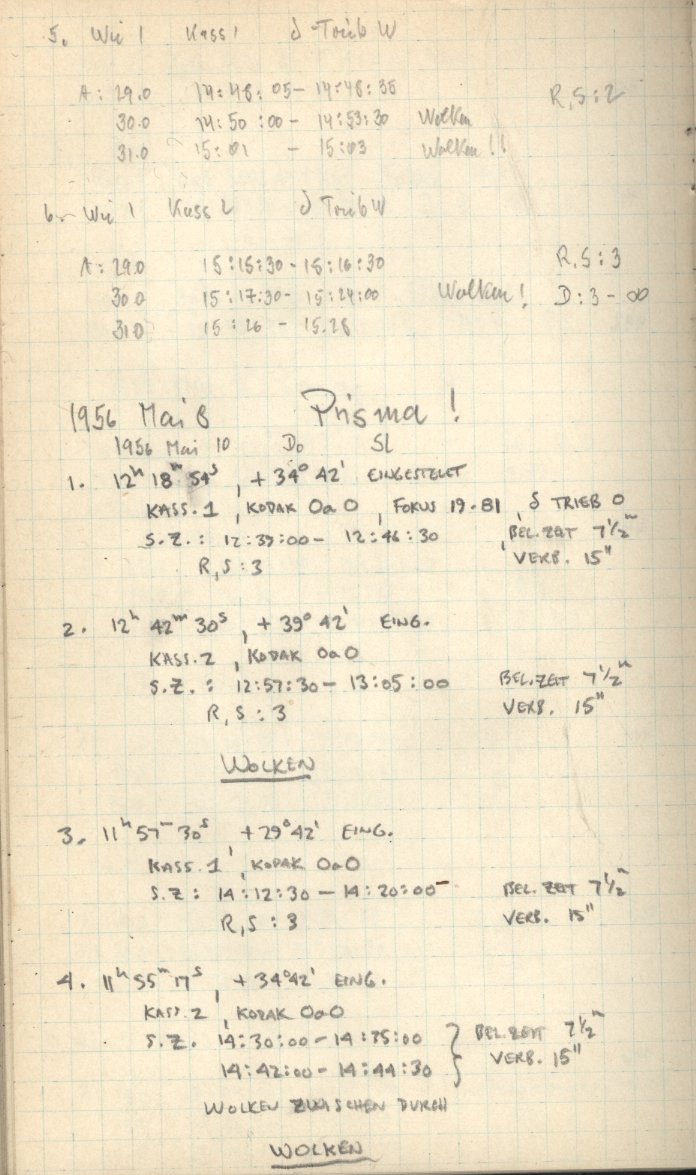 5. Wu 1 Kass 1 δ-Trieb W
A: 29.0 14:48:05 – 14:48:35 R,S:2
30.0 14:50:00 – 14:53:30 Wolken
31.0 15:01 – 15:03 Wolken!!
6. Wu 1 Kass 2 δ Trieb W
A: 29.0 15:15:30 – 15:16:30 R,S:3
30.0 15:17:30 – 15:24:00 Wolken! D:3-∞
31.0 15:26 – 15.28
1956 Mai 8 Prisma!
1956 Mai 10 Do SL
1. 12ʰ 18ᵐ 54ˢ, +34° 42' EINGESTELLT
KASS. 1, KODAK OaO, FOKUS 19.81, δ TRIEB O
S.Z.: 12:39:00 – 12:46:30, BEL.ZEIT 7½ᵐ
R,S:3 VERB. 15"
2. 12ʰ 42ᵐ 30ˢ, +39° 42' EING.
KASS. 2, KODAK OaO
S.Z.: 12:57:30 – 13:05:00 BEL.ZEIT 7½ᵐ
R,S:3 VERB. 15"
WOLKEN
3. 11ʰ 57ᵐ 30ˢ, +29° 42' EING.
KASS. 1, KODAK OaO
S.Z: 14:12:30 – 14:20:00 BEL.ZEIT 7½ᵐ
R,S:3 VERB. 15"
4. 11ʰ 55ᵐ 17ˢ, +34° 42' EING.
KASS. 2, KODAK OaO
S.Z. 14:30:00 – 14:35:00 } BEL.ZEIT 7½ᵐ
14:42:00 – 14:44:30 VERB. 15"
WOLKEN ZWISCHEN DURCH
WOLKEN